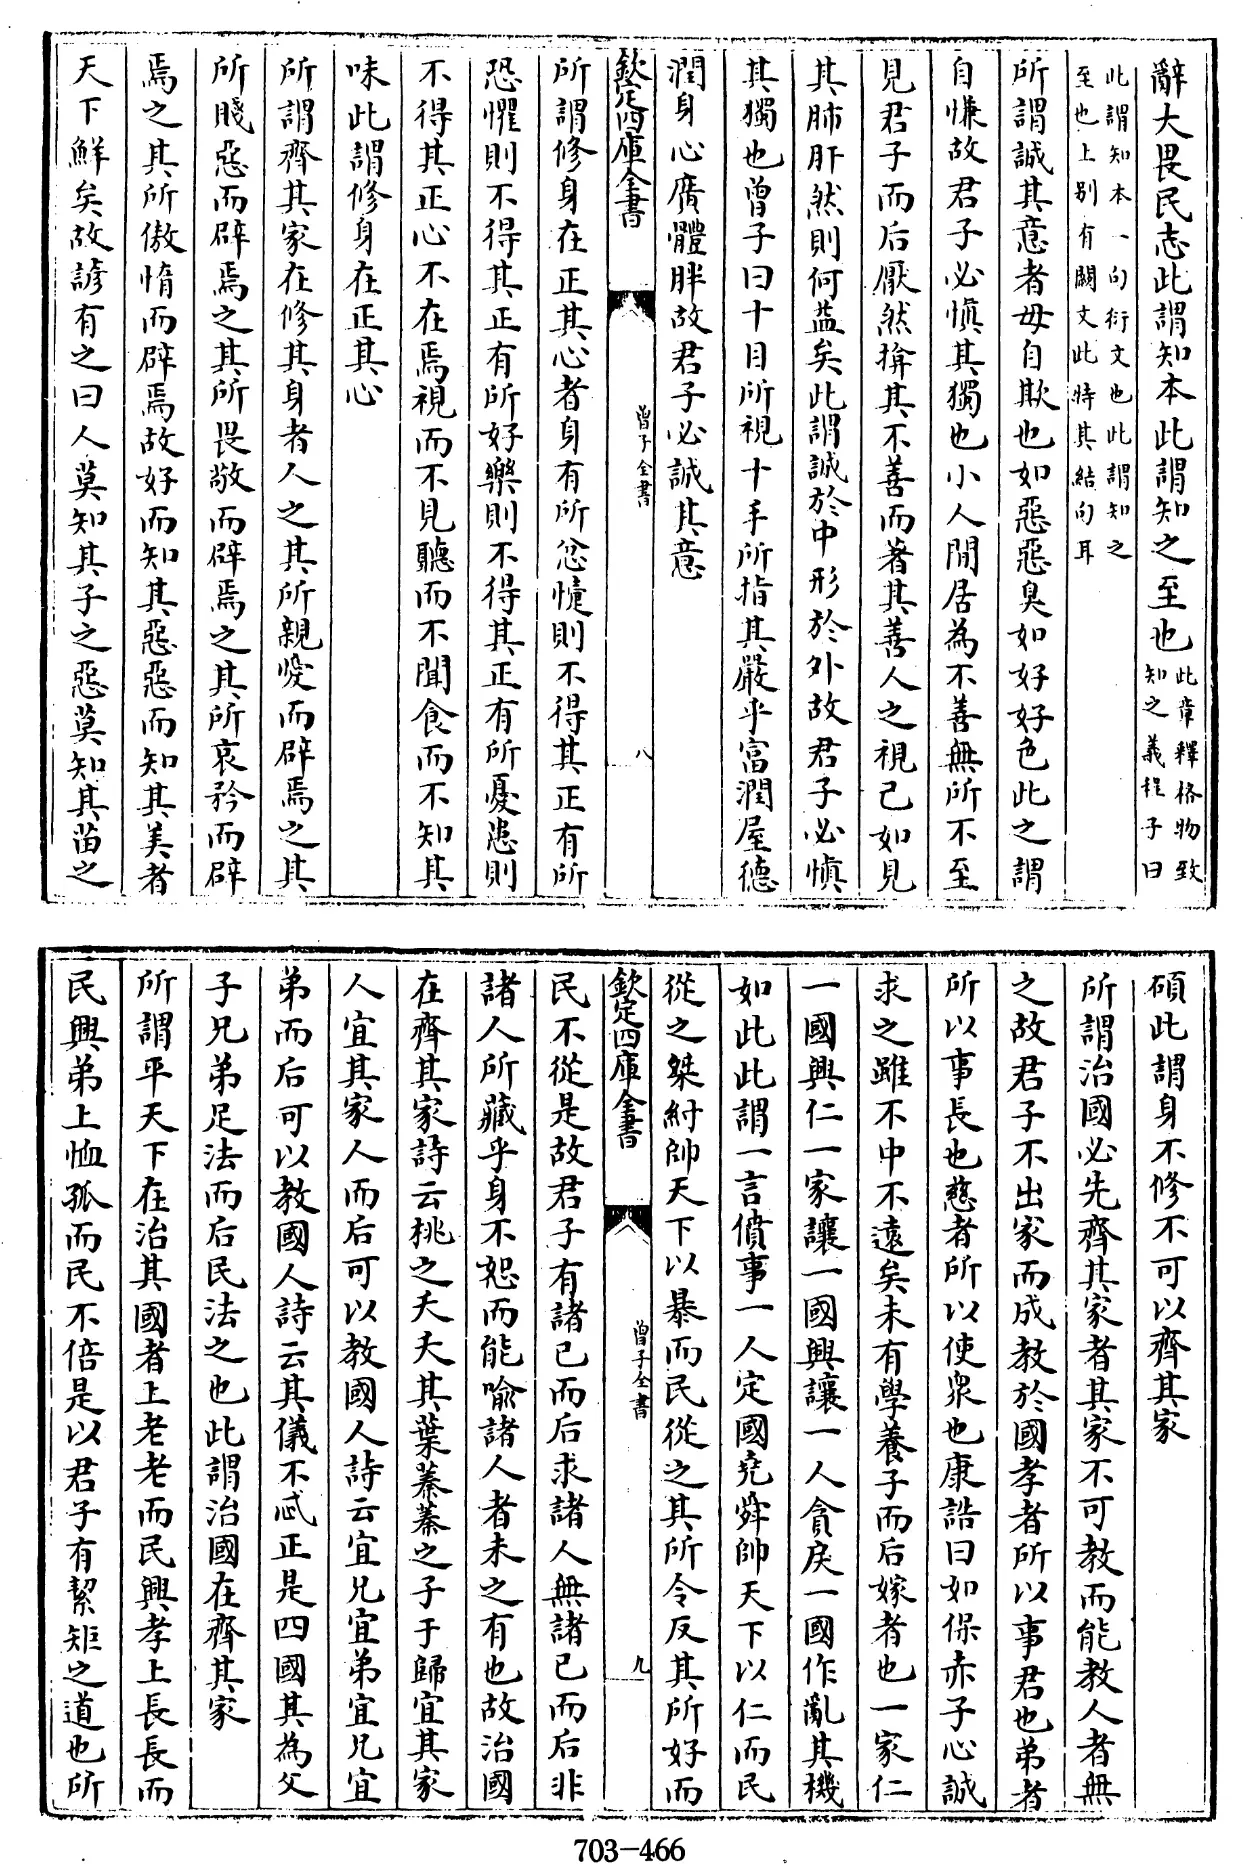 辭大畏民志此謂知本此謂知之至也此章釋格物致知之義程子曰
此謂知本一句衍文也此謂知之至也上别有闕文此特其結句耳
所謂誠其意者毋自欺也如惡惡臭如好好色此之謂
自慊故君子必慎其獨也小人閒居為不善無所不至
見君子而后厭然揜其不善而著其善人之視己如見
其肺肝然則何益矣此謂誠於中形於外故君子必慎
其獨也曾子曰十目所視十手所指其嚴乎富潤屋德
潤身心廣體胖故君子必誠其意
欽定四庫全書 曾子全書 八
所謂修身在正其心者身有所忿懥則不得其正有所
恐懼則不得其正有所好樂則不得其正有所憂患則
不得其正心不在焉視而不見聽而不聞食而不知其
味此謂修身在正其心
所謂齊其家在修其身者人之其所親愛而辟焉之其
所賤惡而辟焉之其所畏敬而辟焉之其所哀矜而辟
焉之其所傲惰而辟焉故好而知其惡惡而知其美者
天下鮮矣故諺有之曰人莫知其子之惡莫知其苗之
碩此謂身不修不可以齊其家
所謂治國必先齊其家者其家不可教而能教人者無
之故君子不出家而成教於國孝者所以事君也弟者
所以事長也慈者所以使衆也康誥曰如保赤子心誠
求之雖不中不遠矣未有學養子而后嫁者也一家仁
一國興仁一家讓一國興讓一人貪戾一國作亂其機
如此此謂一言僨事一人定國堯舜帥天下以仁而民
從之桀紂帥天下以暴而民從之其所令反其所好而
欽定四庫全書 曾子全書 九
民不從是故君子有諸己而后求諸人無諸己而后非
諸人所藏乎身不恕而能喻諸人者未之有也故治國
在齊其家詩云桃之夭夭其葉蓁蓁之子于歸宜其家
人宜其家人而后可以教國人詩云宜兄宜弟宜兄宜
弟而后可以教國人詩云其儀不忒正是四國其為父
子兄弟足法而后民法之也此謂治國在齊其家
所謂平天下在治其國者上老老而民興孝上長長而
民興弟上恤孤而民不倍是以君子有絜矩之道也所
703-466